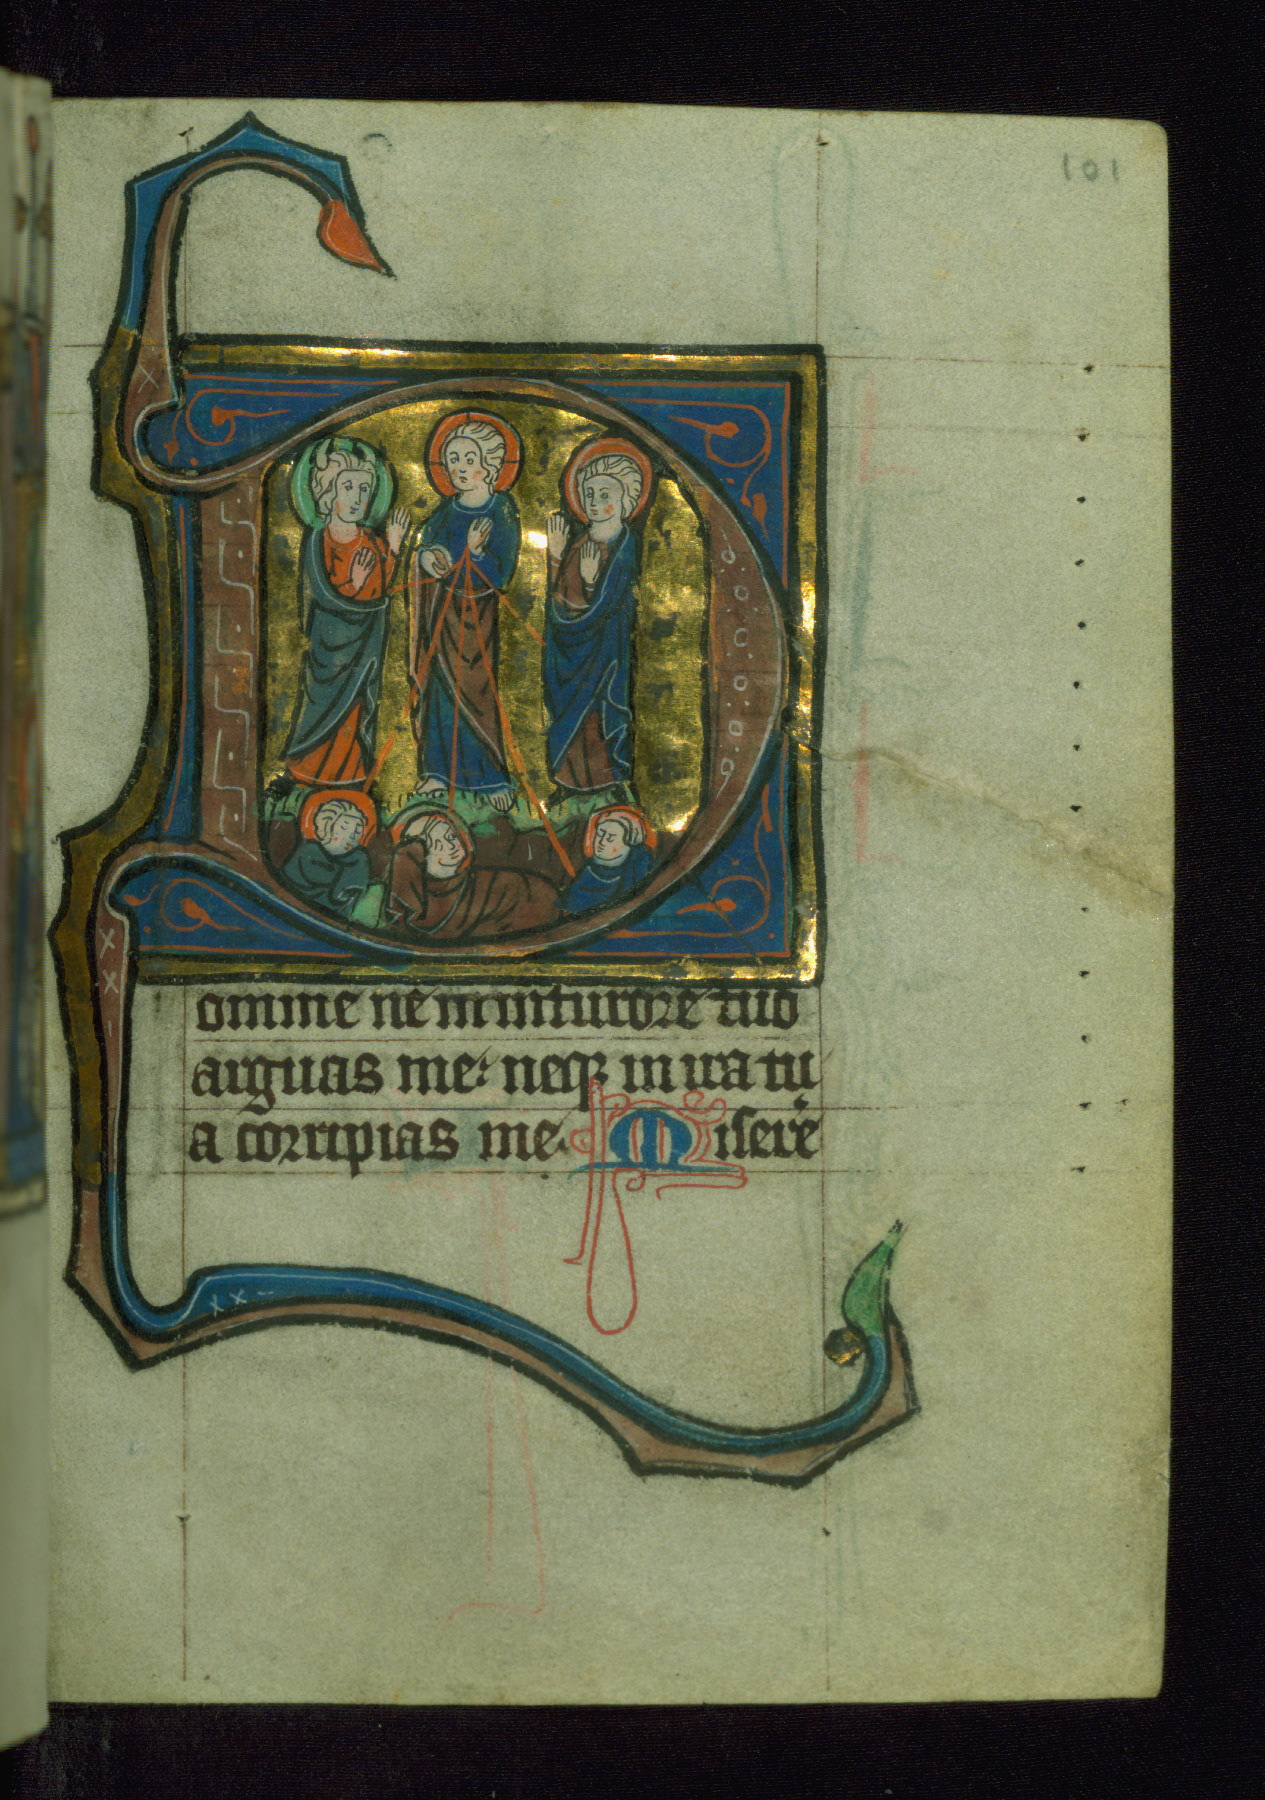 101
D
omine ne in in furore tuo
arguas me: neq; in ira tu
a corripias me. Misere